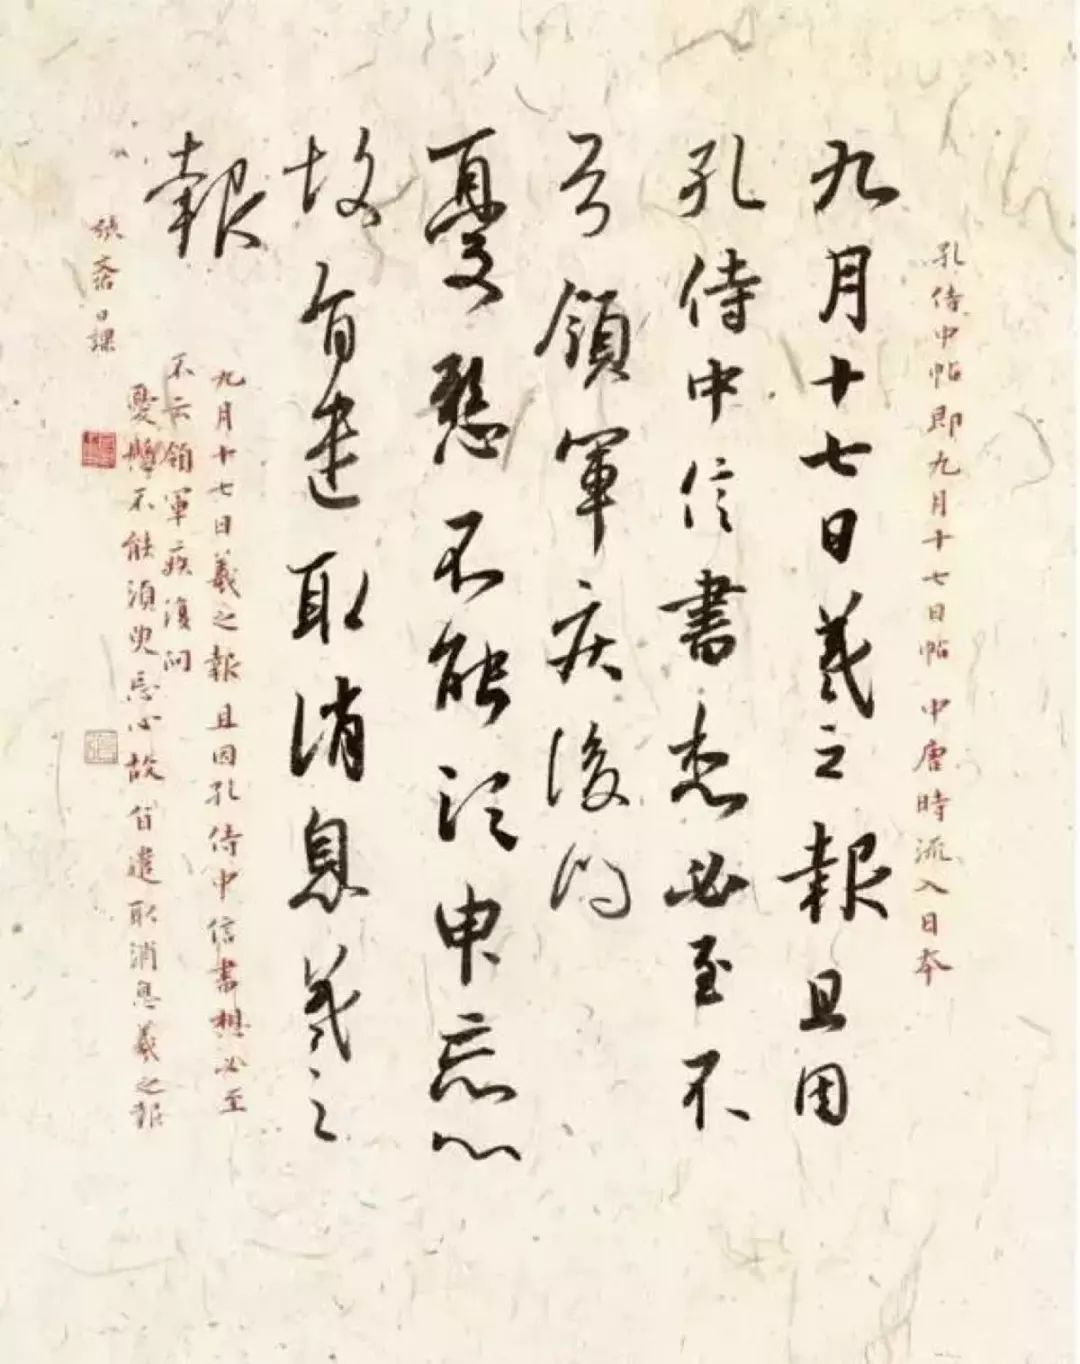 孔侍中帖即九月十七日帖 中唐時流入日本
九月十七日羲之報且因
孔侍中信書想必至不
云領軍疾後問
憂懸不能須臾忘心
故旨遣取消息羲之
報
九月十七日羲之報且因孔侍中信書想必至
不云領軍疾復問
憂懸不能須臾忘心故旨遣取消息羲之報
張 日課